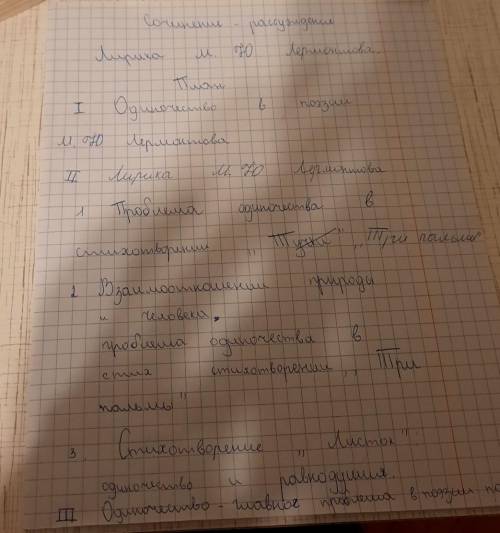 Сочинение - рассуждение
Лирика М. Ю Лермонтова.
План
I Одиночество в поэзии
М. Ю Лермонтова
II Лирика М. Ю Лермонтова
1 Проблема одиночества в
стихотворении „Тучи" „Три пальмы
2 Взаимоотношении природы
и человека,
проблема одиночества в
стих стихотворении „Три
пальмы"
3. Стихотворение „Листок"
одиночество и равнодушия.
III Одиночество - главное проблема в поэзии